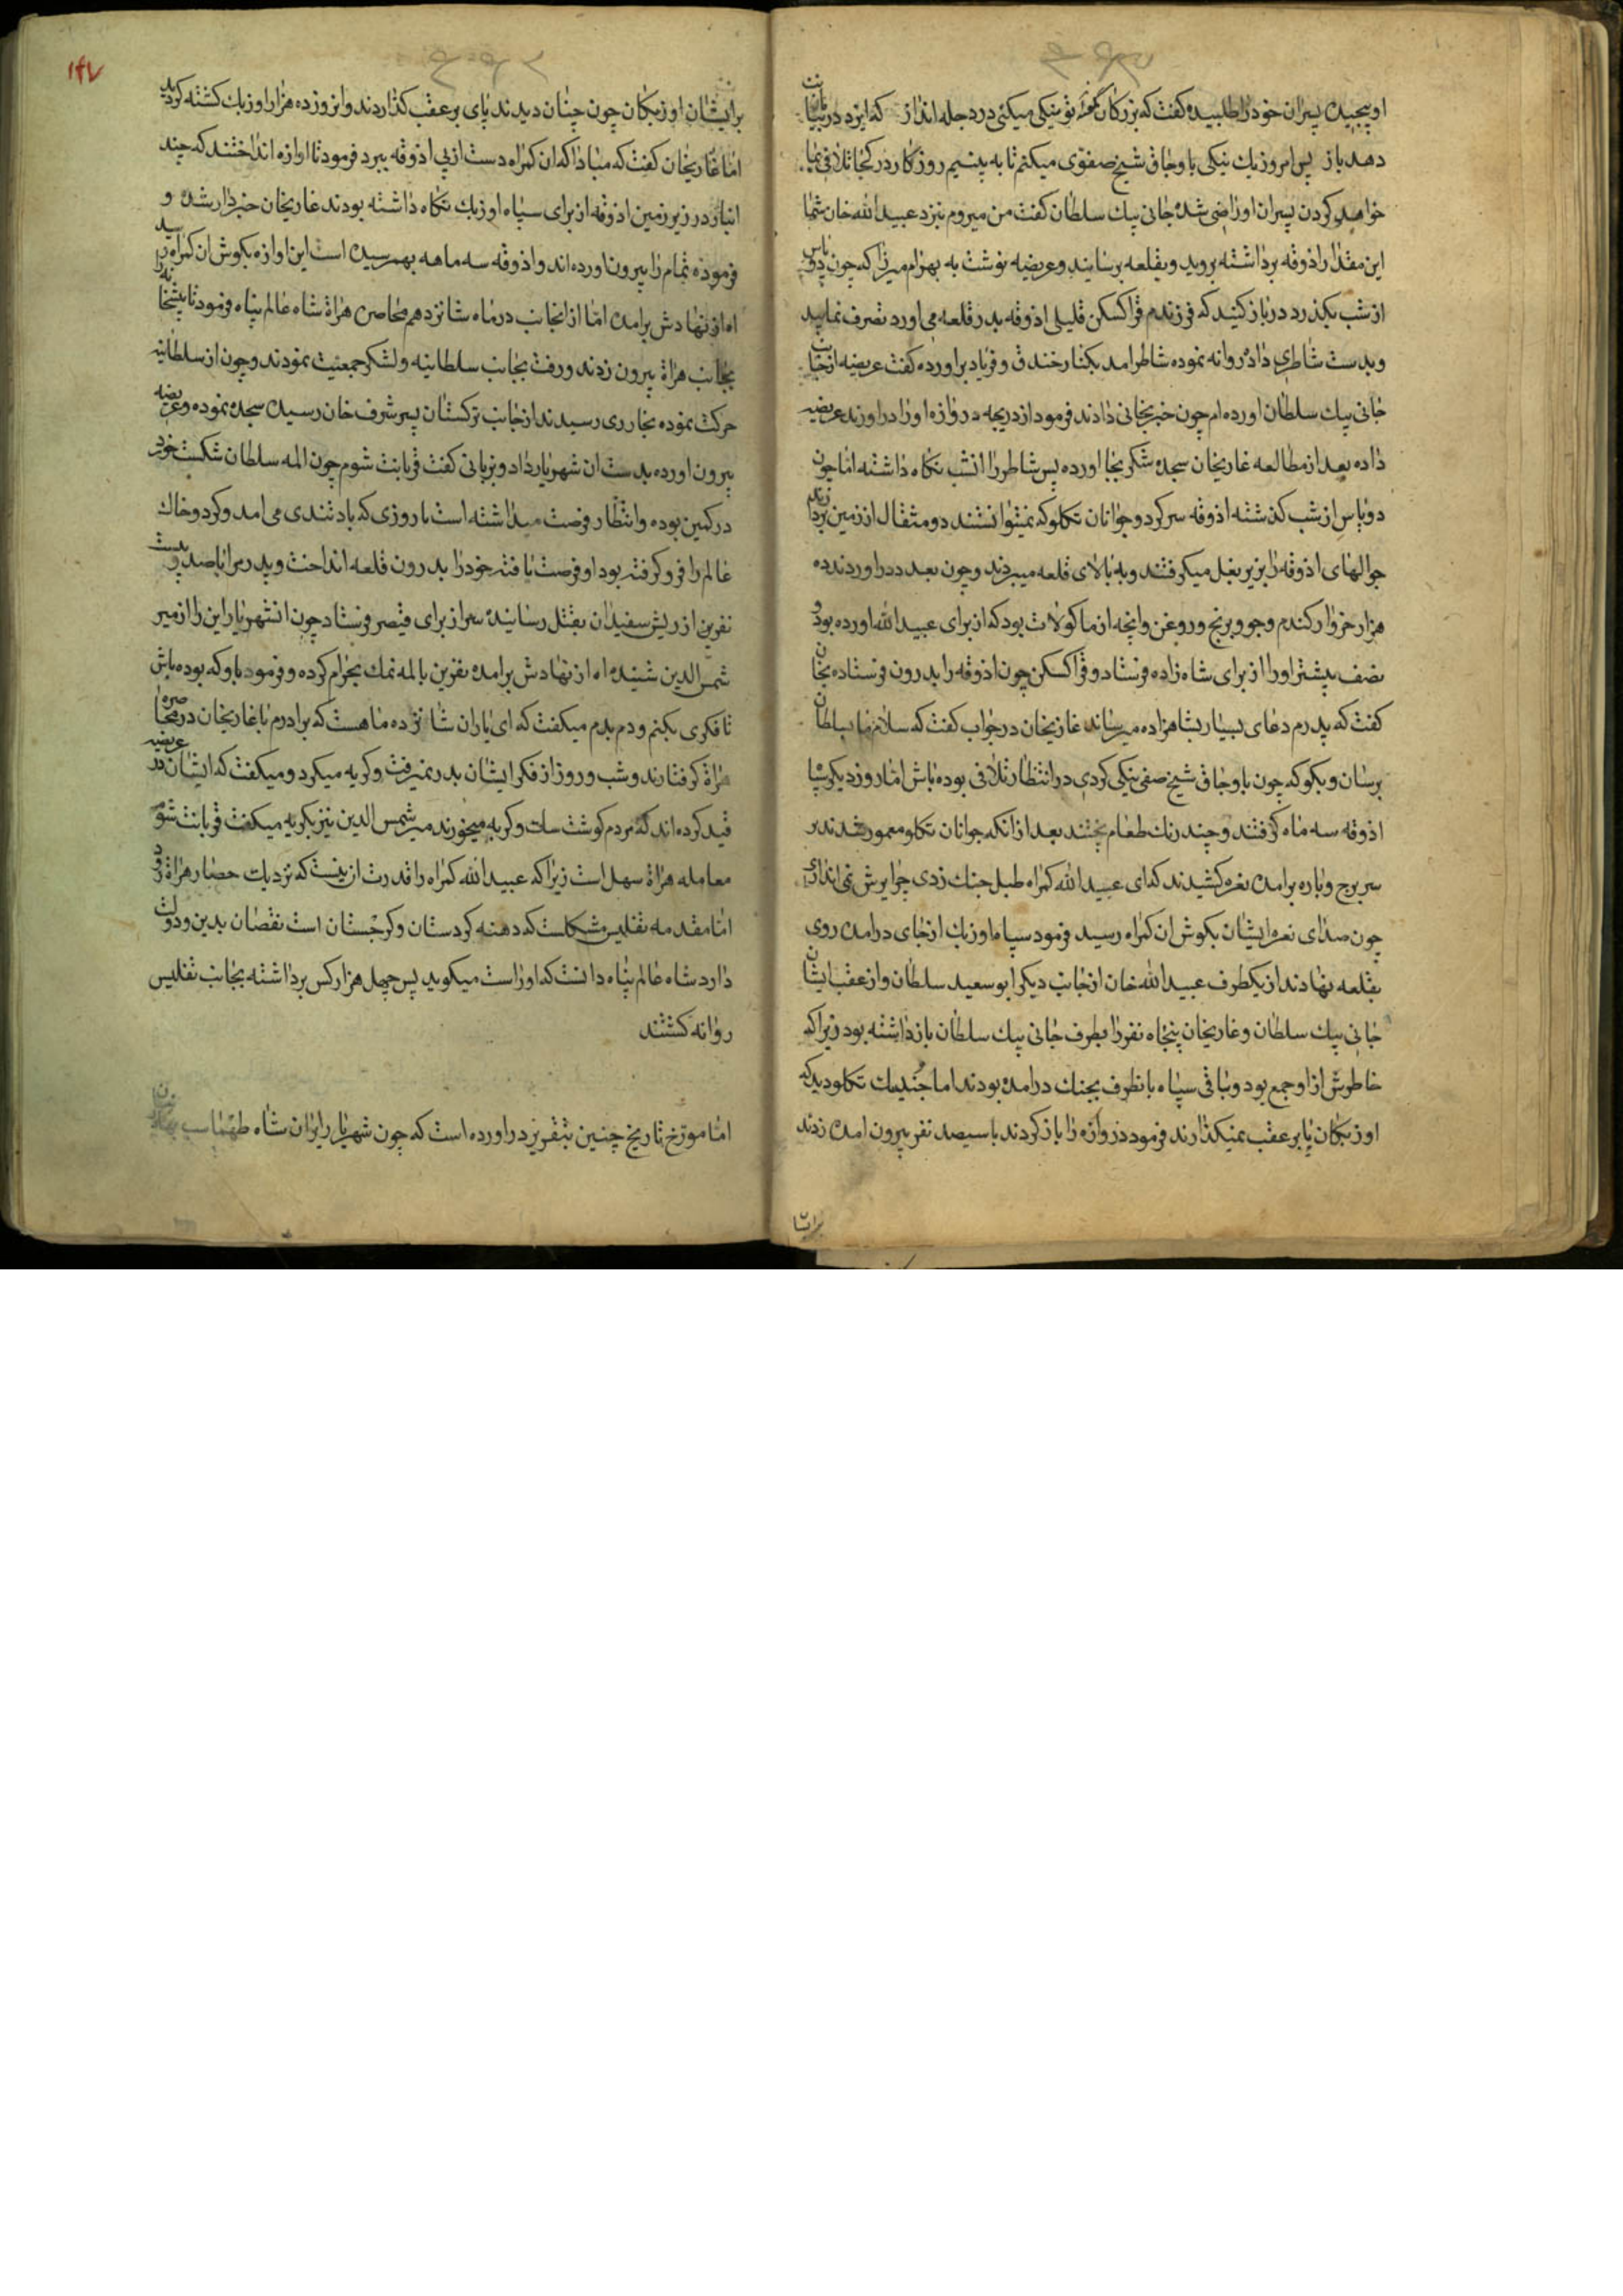 او پیچیده پسران خود را طلبیده گفت که بزرگان گفته تو نیکی میکنی در دجله انداز که ایزد در بیابانت
دهد باز پس امروز یك نیکی باوجاق شیخ صفوی میکنم تا به بینیم روزکار در کجا تلافی بما
خواهد کردن پسران او راضی شده جانی بیك سلطان کفت من میروم بنزد عبید الله خان شما
این مقدار اذوقه برداشته بروید و بقلعه برسانید و عریضه نوشت به بهرام میرزا که چون دو پاس
از شب بکذرد در باز کنید که فرزندم قرا کسکن قلیلی اذوقه بدر قلعه می اورد تصرف نمایید
و بدست شاطری داده روانه نموده شاطر امد بکنار خندق و فریاد براورده کفت عریضه از جانب
جانی بیك سلطان اورده ام چون خبر بخانی دادند فرمود از دریچه دروازه او را دراورند عریضه
داده بعد از مطالعه غازیخان سجده شکر بجا اورده پس شاطر را انشب نکاه داشته اما چون
دو پاس از شب کذشته اذوقه سر کرد و جوانان تکلو که نمیتوانستند دو مثقال از زمین بردارند
جوالهای اذوقه را بزیر بغل میکرفتند و به بالای قلعه میبردند و چون بعدد دراوردند ده
هزار خروار کندم و جو و برنج و روغن و انچه از ماکولات بود که از برای عبید الله اورده بود و
نصف بیشتر او را از برای شاه زاده فرستاد و قرا کسکن چون اذوقه را بدرون فرستاده بخان
کفت که پدرم دعای بسیار بشاهزاده میرساند غازیخان در جواب کفت که سلام ما بسلطان
برسان و بکو که چون باوجاق شیخ صفی نیکی کردی در انتظار تلافی بوده باش اما روز دیکر سپاه
اذوقه سه ماه کرفتند و چند رنك طعام پختند بعد از انکه جوانان تکلو معمور شدند بر
سر برج و باره برامده نعره کشیدند که ای عبید الله کمراه طبل جنك زدی چرا یرش نمی اندازی
چون صدای نعره ایشان بکوش ان کمراه رسید فرمود سپاه اوزبك از جای درامده روی
بقلعه نهادند از یکطرف عبید الله خان از جانب دیکر ابو سعید سلطان و از عقب ایشان
جانی بیك سلطان و غازیخان پنجاه نفر را بطرف جانی بیك سلطان بازداشته بود زیرا که
خاطرش از او جمع بود و باقی سپاه بانطرف بجنك درامده بودند اما تکلو دید که
اوزبکان پا بر عقب نمیکذارند فرمود دروازه را باز کردند با سیصد نفر بیرون امده زدند
برایشا
۱۴۷
بر ایشان اوزبکان چون چنان دیدند پای بر عقب کذاردند و انروز ده هزار اوزبك کشته کردید
اما غازیخان کفت که مبادا که ان کمراه دست از پی اذوقه ببرد فرمود تا اوازه انداختند که چند
انبار در زیر زمین اذوقه از برای سپاه اوزبك نکاه داشته بودند غازیخان خبردار شده و
فرموده تمام را بیرون اورده اند و اذوقه سه ماهه بهم رسیده است این اوازه بکوش ان کمراه رسید
اه از نهادش برامد اما از انجانب در ماه شانزدهم محاصره هراة شاه عالم پناه فرمود تا پیشخانه را
بجانب هراة بیرون زدند و رفت بجانب سلطانیه و لشکر جمعیت نمودند و چون از سلطانیه
حرکت نموده بخار ری رسیدند از جانب ترکستان پسر شرف خان رسیده سجده نموده و عریضه
بیرون اورده بدست ان شهریار داد و بزبانی کفت قربانت شوم چون المه سلطان شکست خورد
در کمین بوده و انتظار فرصت میداشته است تا روزی که باد تندی می امد و کرد و خاك
عالم را فرو کرفته بود او فرصت یافته خود را بدرون قلعه انداخت و پدرم را با صد و بیست
نفر ین از ریش سفیدان بقتل رسانیده سر از برای قیصر فرستاد چون انشهریار این را از میر
شمس الدین شنیده اه از نهادش برامده نفرین بالمه نمك بحرام کرده و فرمود باو که بوده باش
تا فکری بکنم و دم بدم میکفت که ای یاران شانزده ماهست که برادرم با غازیخان در محاصره
هراة کرفتارند و شب و روز از فکر ایشان بدر نمیرفت و کریه میکرد و میکفت که ایشان در عریضه
قید کرده اند که مردم کوشت سك و کربه میخورند میر شمس الدین نیز بکریه میکفت قربانت شوم
معامله هراة سهل است زیرا که عبید الله کمراه را قدرت ان نیست که نزدیك حصار هراة رود
اما مقدمه تفلیس مشکلست که دهنه کردستان و کرجستان است نقصان بدین و دولت
دارد شاه عالم پناه دانست که او راست میکوید پس چهل هزار کس برداشته بجانب تفلیس
روانه کشتند
اما مورخ تاریخ چنین بتقریر دراورده است که چون شهریار ایران شاه طهماسب